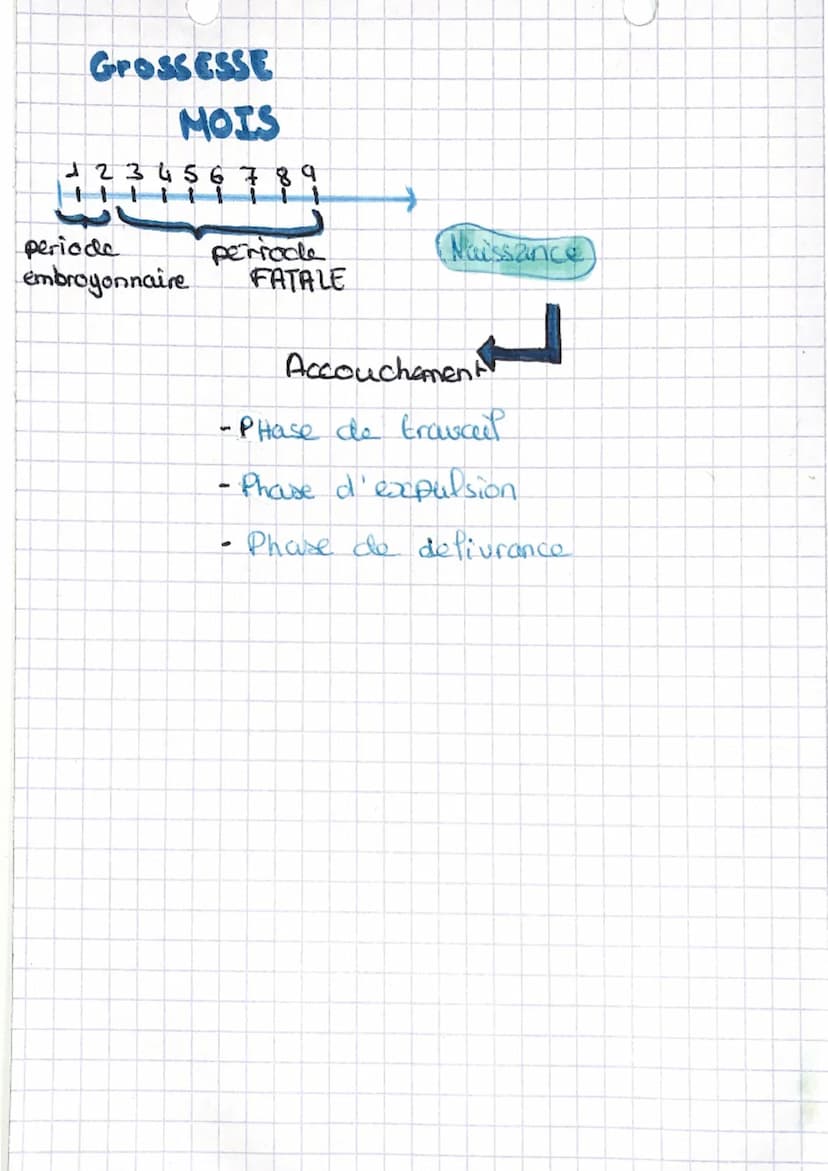 GrossESSE
MOIS
1 2 3 4 5 6 7 8 9
periode
embroyonnaire
période
FATALE
Naissance
Accouchement
- PHase de travail
- Phase d'expulsion
- Phase de delivrance